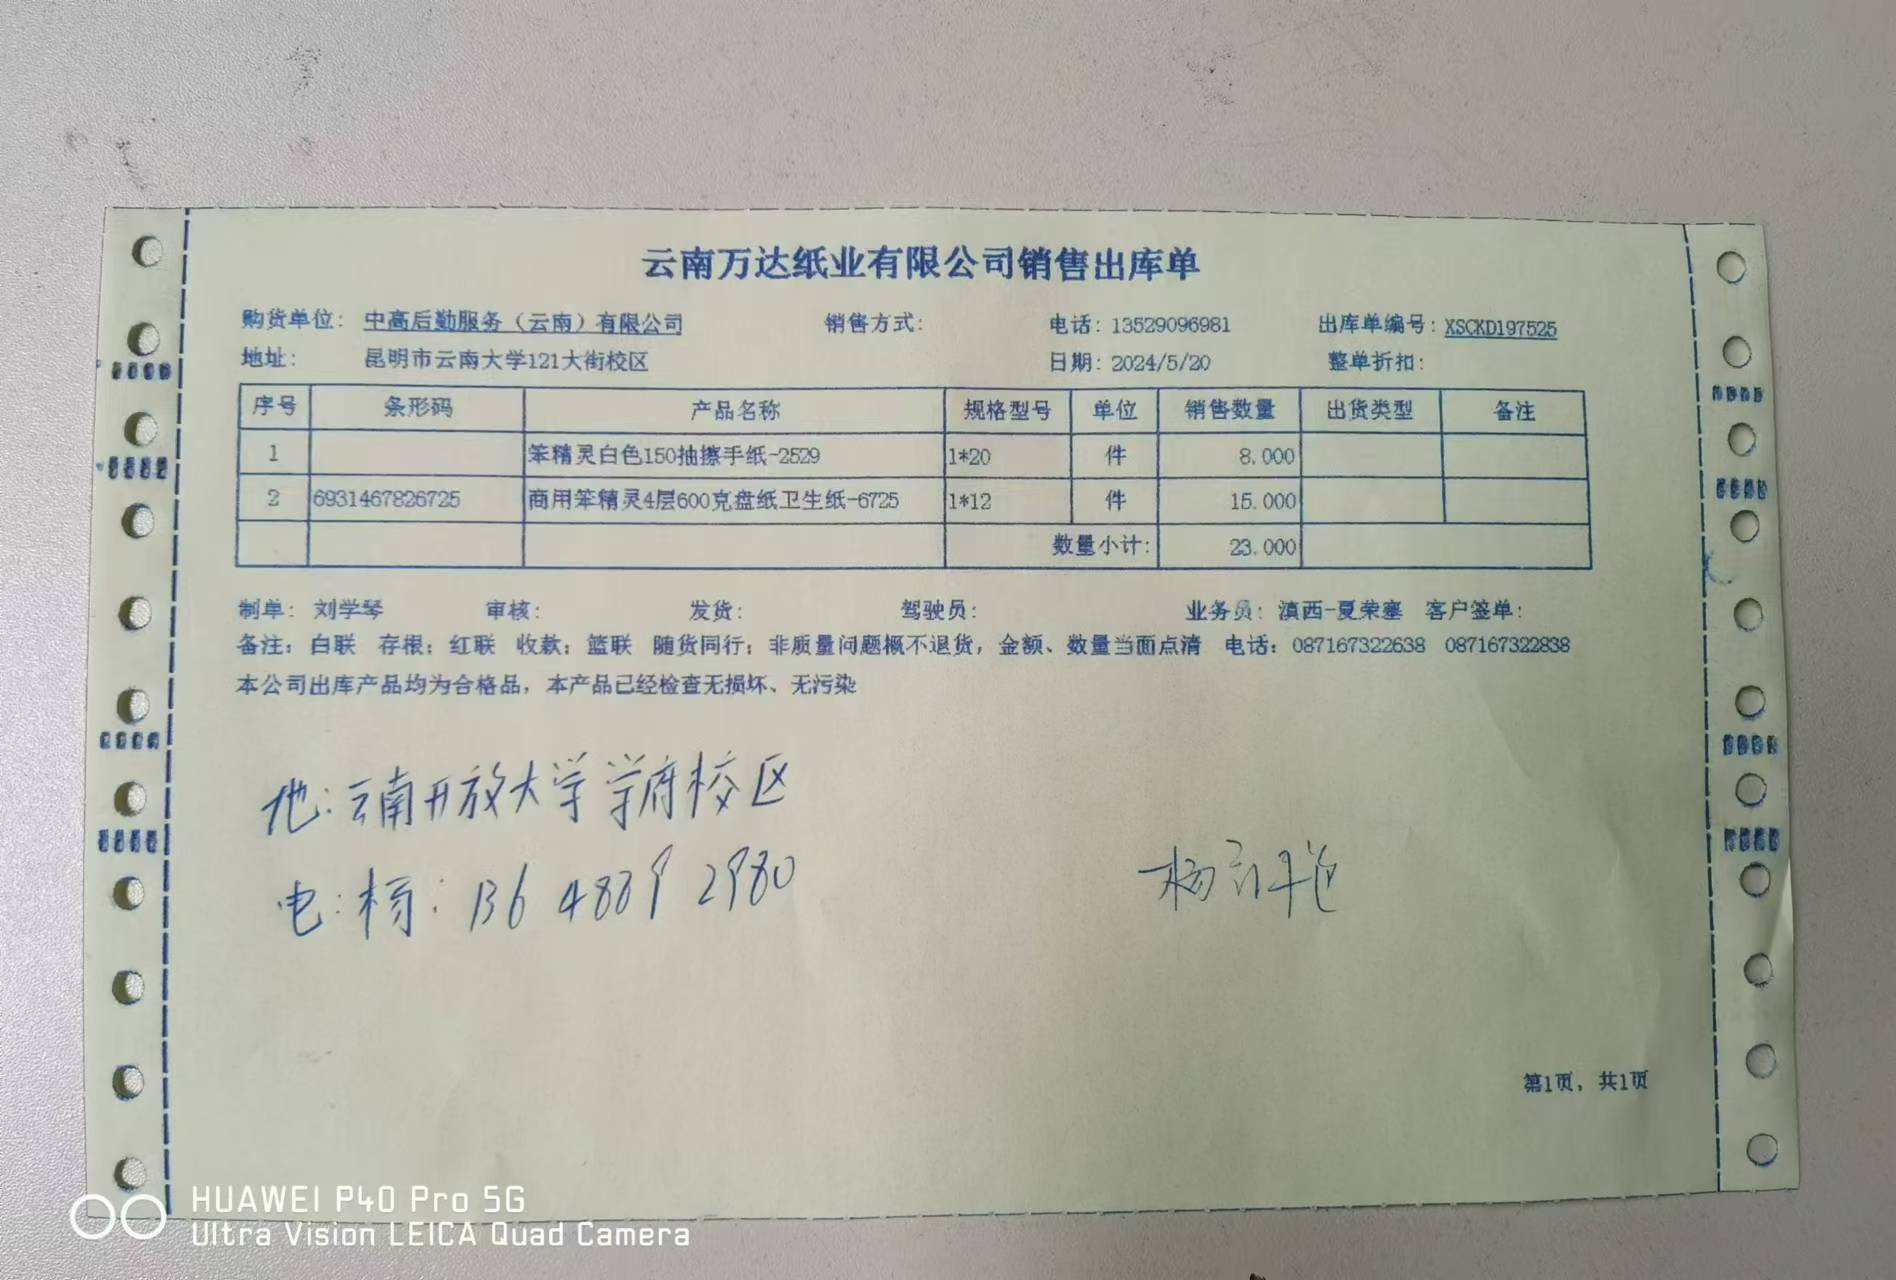 云南万达纸业有限公司销售出库单
购货单位: 中高后勤服务(云南)有限公司 销售方式: 电话: 13529096981 出库单编号: XSCKD197525
地址: 昆明市云南大学121大街校区 日期: 2024/5/20 整单折扣:
序号 条形码 产品名称 规格型号 单位 销售数量 出货类型 备注
1 笨精灵白色150抽擦手纸-2529 1*20 件 8.000
2 6931467826725 商用笨精灵4层600克盘纸卫生纸-6725 1*12 件 15.000
数量小计: 23.000
制单: 刘学琴 审核: 发货: 驾驶员: 业务员: 滇西-夏荣塞 客户签单:
备注: 白联 存根; 红联 收款; 篮联 随货同行; 非质量问题概不退货, 金额、数量当面点清 电话: 087167322638 087167322838
本公司出库产品均为合格品, 本产品已经检查无损坏、无污染
地:云南开放大学学府校区
电:杨: 136 4889 2980
杨
第1页, 共1页
HUAWEI P40 Pro 5G
Ultra Vision LEICA Quad Camera